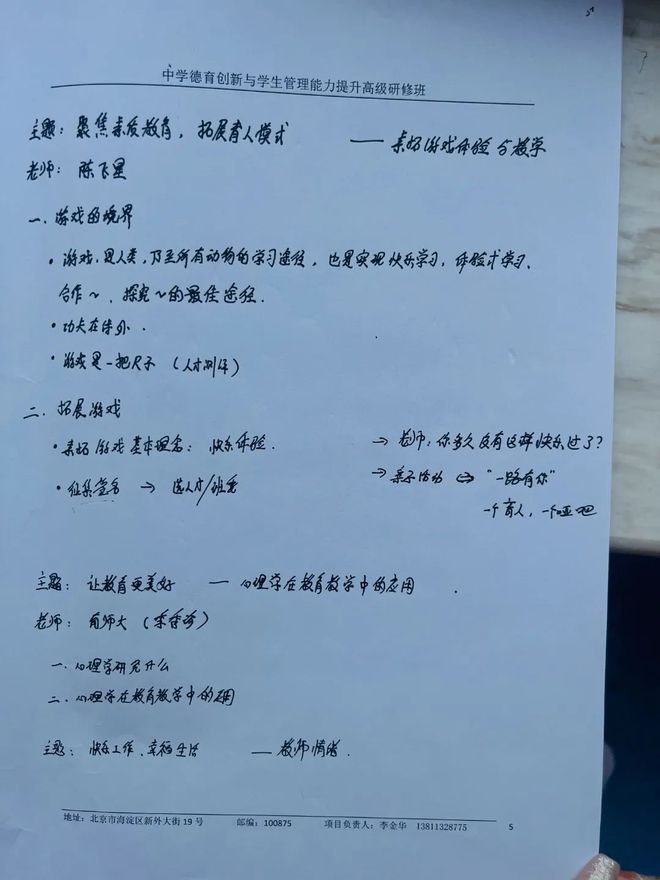 中学德育创新与学生管理能力提升高级研修班
主题：聚焦素质教育，拓展育人模式 —— 素拓游戏体验与教学
老师：陈飞星
一、游戏的境界
• 游戏，是人类，乃至所有动物的学习途径，也是实现快乐学习，体验式学习、
合作～、探究～的最佳途径．
• 功夫在诗外．
• 游戏是一把尺子（人才测评）
二、拓展游戏
• 素拓游戏基本理念：快乐体验． → 老师：你多久没有这样快乐过了？
• 组集 → 选人才/班委 → 亲子活动 ⇨ “一路有你”
一个盲人，一个哑巴
主题：让教育更美好 — 心理学在教育教学中的应用．
老师：首师大（李）
一、心理学研究什么
二、心理学在教育教学中的应用
主题：快乐工作、幸福生活 — 教师情绪．
地址：北京市海淀区新外大街 19 号 邮编：100875 项目负责人：李金华 13811328775 5